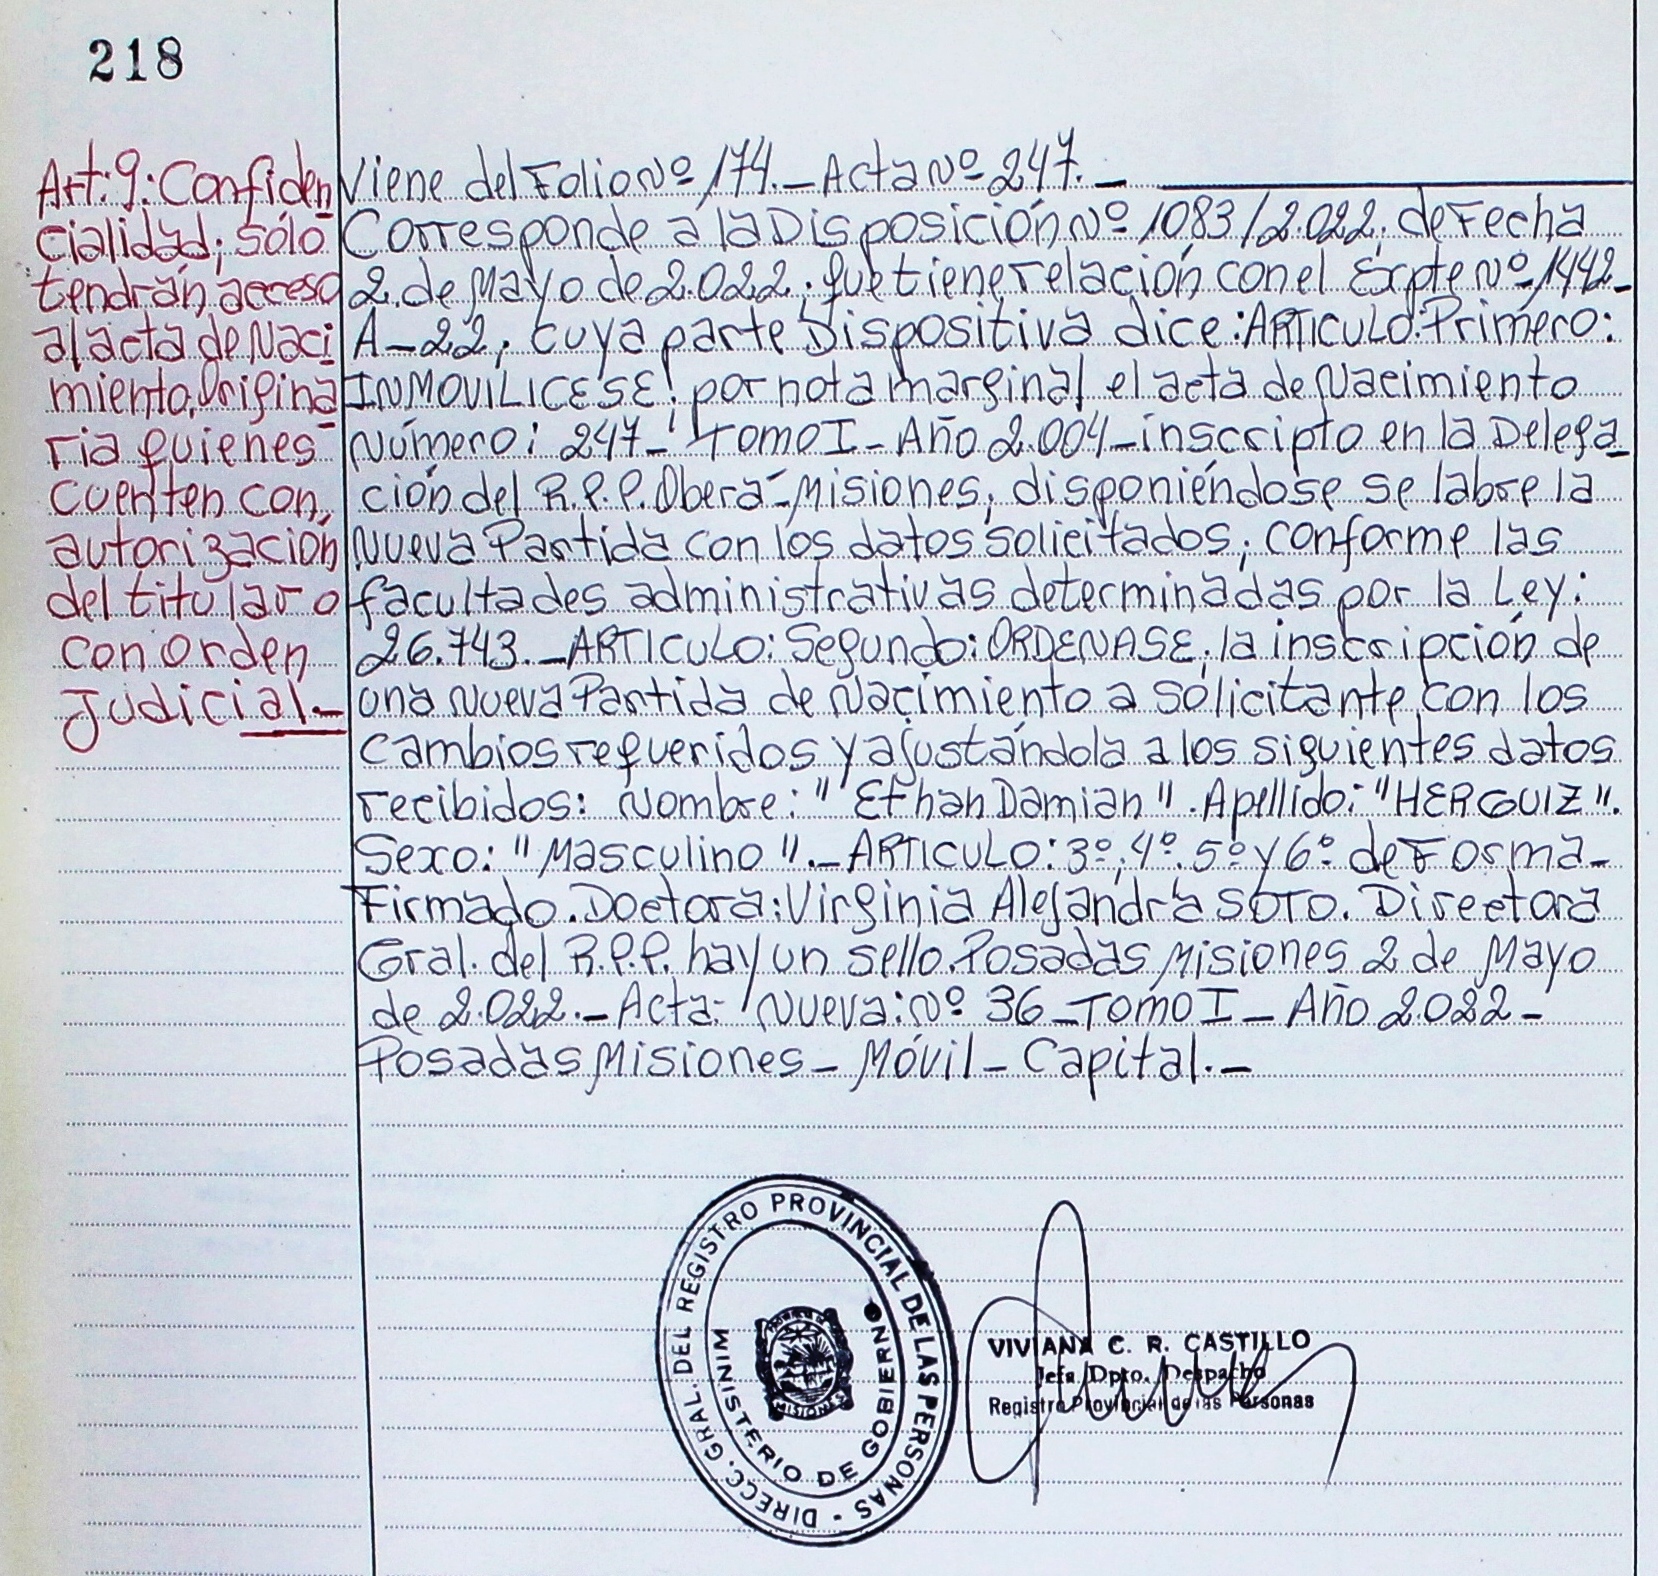 218
Art:9: Confiden
cialidad; sólo
tendrán, acceso
al acta de Naci
miento, Origina
ria quienes
cuenten con,
autorización
del titular o
con orden
Judicial._
Viene del Folio Nº 174._ Acta Nº 247._
Corresponde a la Disposición Nº 1083/2.022, de Fecha
2. de Mayo de 2.022; que tiene relación con el Expte Nº 1442_
A_22, cuya parte Dispositiva dice: ARTICULO: Primero:
INMOVILICESE; por nota marginal el acta de Nacimiento
Número: 247_ Tomo I_ Año 2.004_ inscripto en la Delega_
ción del R.P.P. Obera-Misiones, disponiéndose se labre la
Nueva Partida con los datos solicitados, conforme las
facultades administrativas determinadas por la Ley:
26.743._ ARTICULO: Segundo: ORDENASE, la inscripción de
una Nueva Partida de Nacimiento a solicitante, con los
cambios requeridos y ajustándola a los siguientes datos
recibidos: Nombre: "Ethan Damian". Apellido: "HERGUIZ".
Sexo: "Masculino"._ ARTICULO: 3º, 4º, 5º y 6º de Forma_
Firmado. Doctora: Virginia Alejandra SOTO. Directora
Gral. del R.P.P. hay un sello. Posadas Misiones 2 de Mayo
de 2.022._ Acta: Nueva: Nº 36_ Tomo I_ Año 2.022_
Posadas Misiones_ Móvil_ Capital._
DIRECC. GRAL. DEL REGISTRO PROVINCIAL DE LAS PERSONAS -
MINISTERIO DE GOBIERNO
MISIONES
VIVIANA C. R. CASTILLO
Jefa Dpto. Despacho
Registro Provincial de las Personas